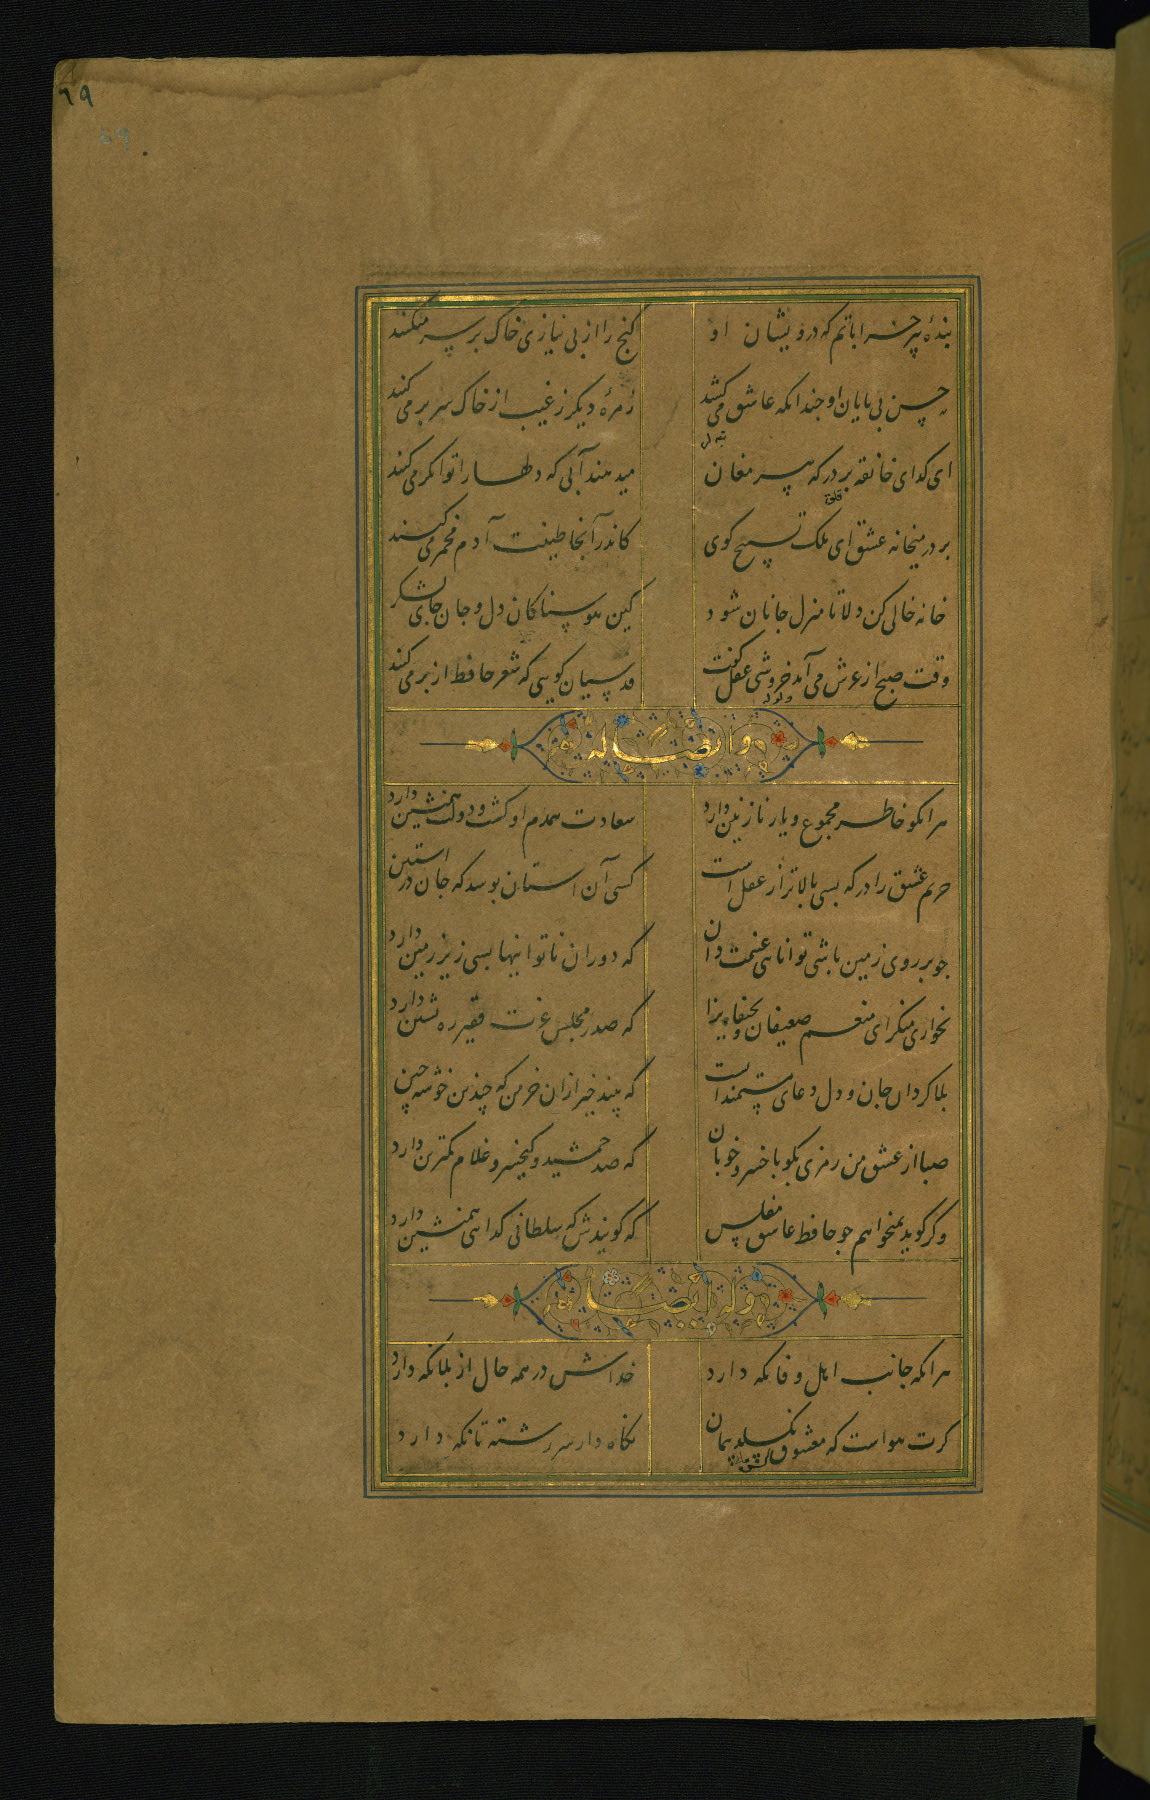 ۶۹
69
بندهٔ پیر خراباتم که درویشان او
گنج را از بی نیازی خاک بر سر میکنند
حسن بی پایان او چندانکه عاشق می کشد
زمرهٔ دیگر ز غیب از خاک سر بر می کنند
ای گدای خانقه بر در که پیر مغان
میدهند آبی که دلها را توانگر می کنند
بر در میخانه عشق ای ملک تسبیح گوی
کاندر آنجا طینت آدم مخمر می کنند
خانه خالی کن دلا تا منزل جانان شود
کین هوسناکان دل و جان جای لشکر
وقت صبح از عرش می آمد خروشی عقل گفت
قدسیان گویی که شعر حافظ از بر می کنند
و ایضا له
هر آنکو خاطر مجموع و یار نازنین دارد
سعادت همدم او گشت و دولت همنشین دارد
حریم عشق را درگه بسی بالاتر از عقل است
کسی آن استان بوسد که جان در استین
چو بر روی زمین باشی توانایی غنیمت دان
که دوران ناتوانیها بسی زیر زمین دارد
بخواری منگر ای منعم ضعیفان و نحیفان را
که صدر مجلس عزت فقیر ره نشین دارد
بلا گردان جان و دل دعای مستمند است
که بیند خیر از ان خرمن که چندین خوشه چین
صبا از عشق من رمزی بگو با خسرو خوبان
که صد جمشید و کیخسرو غلام کمترین دارد
و گر گوید نمیخواهم چو حافظ عاشق مفلس
که گوئیدش که سلطانی گدائی همنشین دارد
وله ایضا
هر آنکه جانب اهل وفا نگه دارد
خداش در همه حال از بلا نگه دارد
گرت هواست که معشوق نگسلد پیمان
نگاه دار سر رشته تا نگه دارد